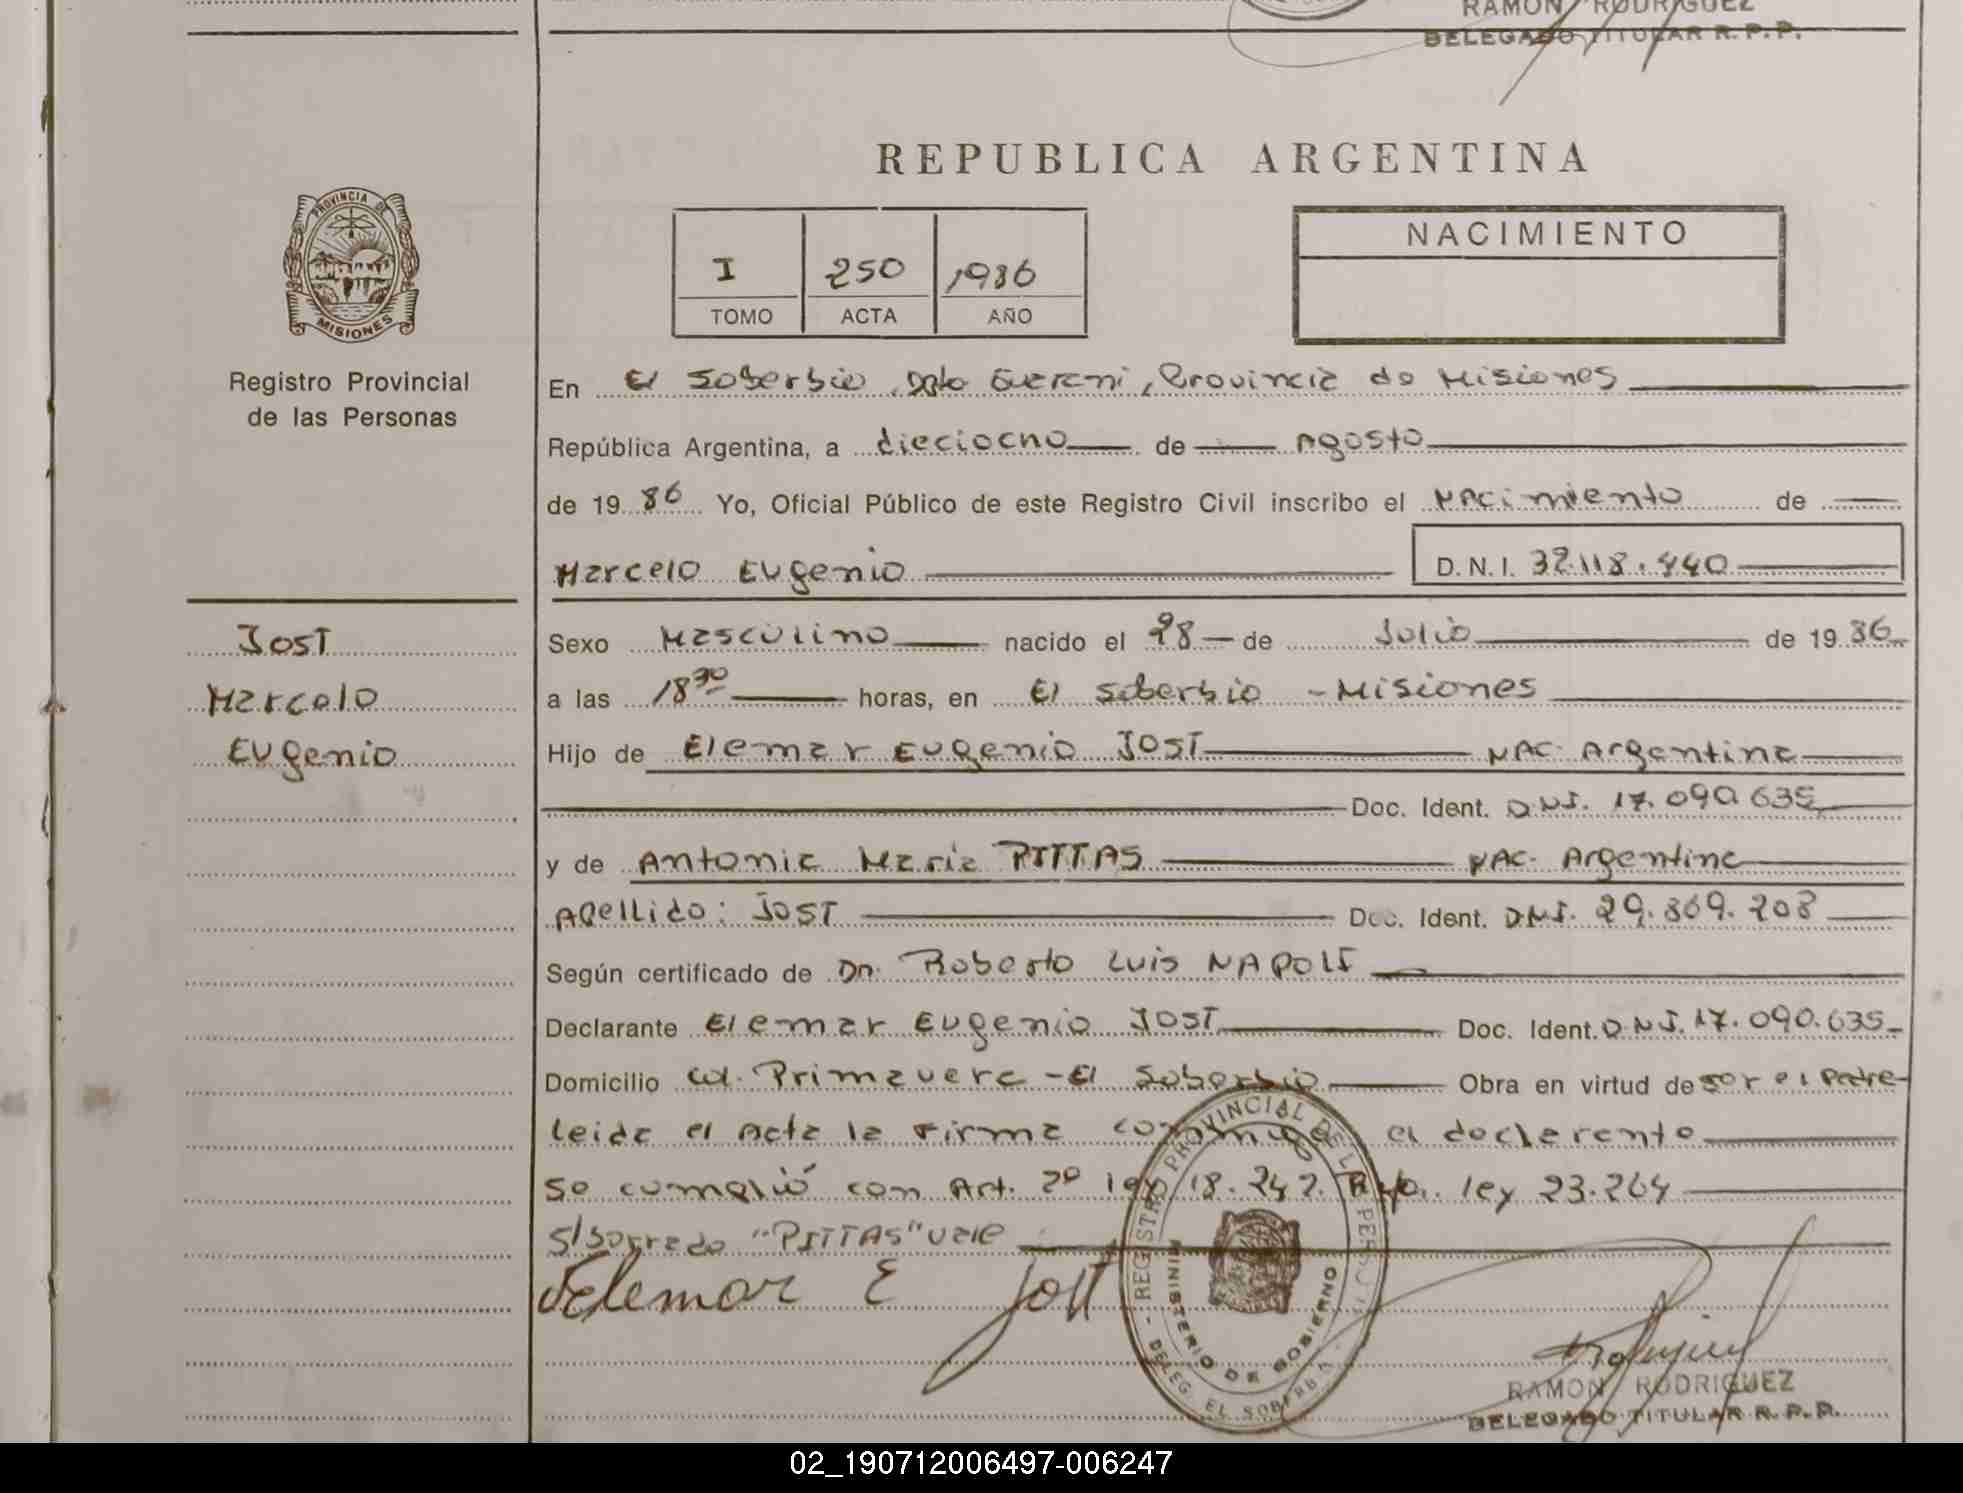 RAMON RODRIGUEZ
DELEGADO TITULAR R. P. P.
REPUBLICA ARGENTINA
PROVINCIA DE
MISIONES
Registro Provincial
de las Personas
I 250 1986
TOMO ACTA AÑO
NACIMIENTO
En El Soberbio, Dpto Guarani, Provincia de Misiones
República Argentina, a dieciocho de Agosto
de 1986 Yo, Oficial Público de este Registro Civil inscribo el Nacimiento de
Marcelo Eugenio D.N.I. 32.118.440
JOST
Marcelo
Eugenio
Sexo Masculino nacido el 28 de Julio de 1986
a las 18 30 horas, en El Soberbio - Misiones
Hijo de Elemar Eugenio JOST NAC. Argentina
Doc. Ident. D.N.I. 17.090.635
y de Antonia Maria PITTAS NAC. Argentina
Apellido: JOST Doc. Ident. D.N.I. 29.869.208
Según certificado de Dr. Roberto Luis NAPOLI
Declarante Elemar Eugenio JOST Doc. Ident. D.N.I. 17.090.635
Domicilio Col. Primavera - El Soberbio Obra en virtud de ser el Padre
Leida el Acta la firma conmigo el declarante
Se cumplió con Art. 2º ley 18.247. Rep. ley 23.264
S/borrado "PITTAS" vale
Elemar E Jost
REGISTRO PROVINCIAL DE LAS PERSONAS
MINISTERIO DE GOBIERNO
DELEG. EL SOBERBIA
RAMON RODRIGUEZ
DELEGADO TITULAR R. P. P.
02_190712006497-006247